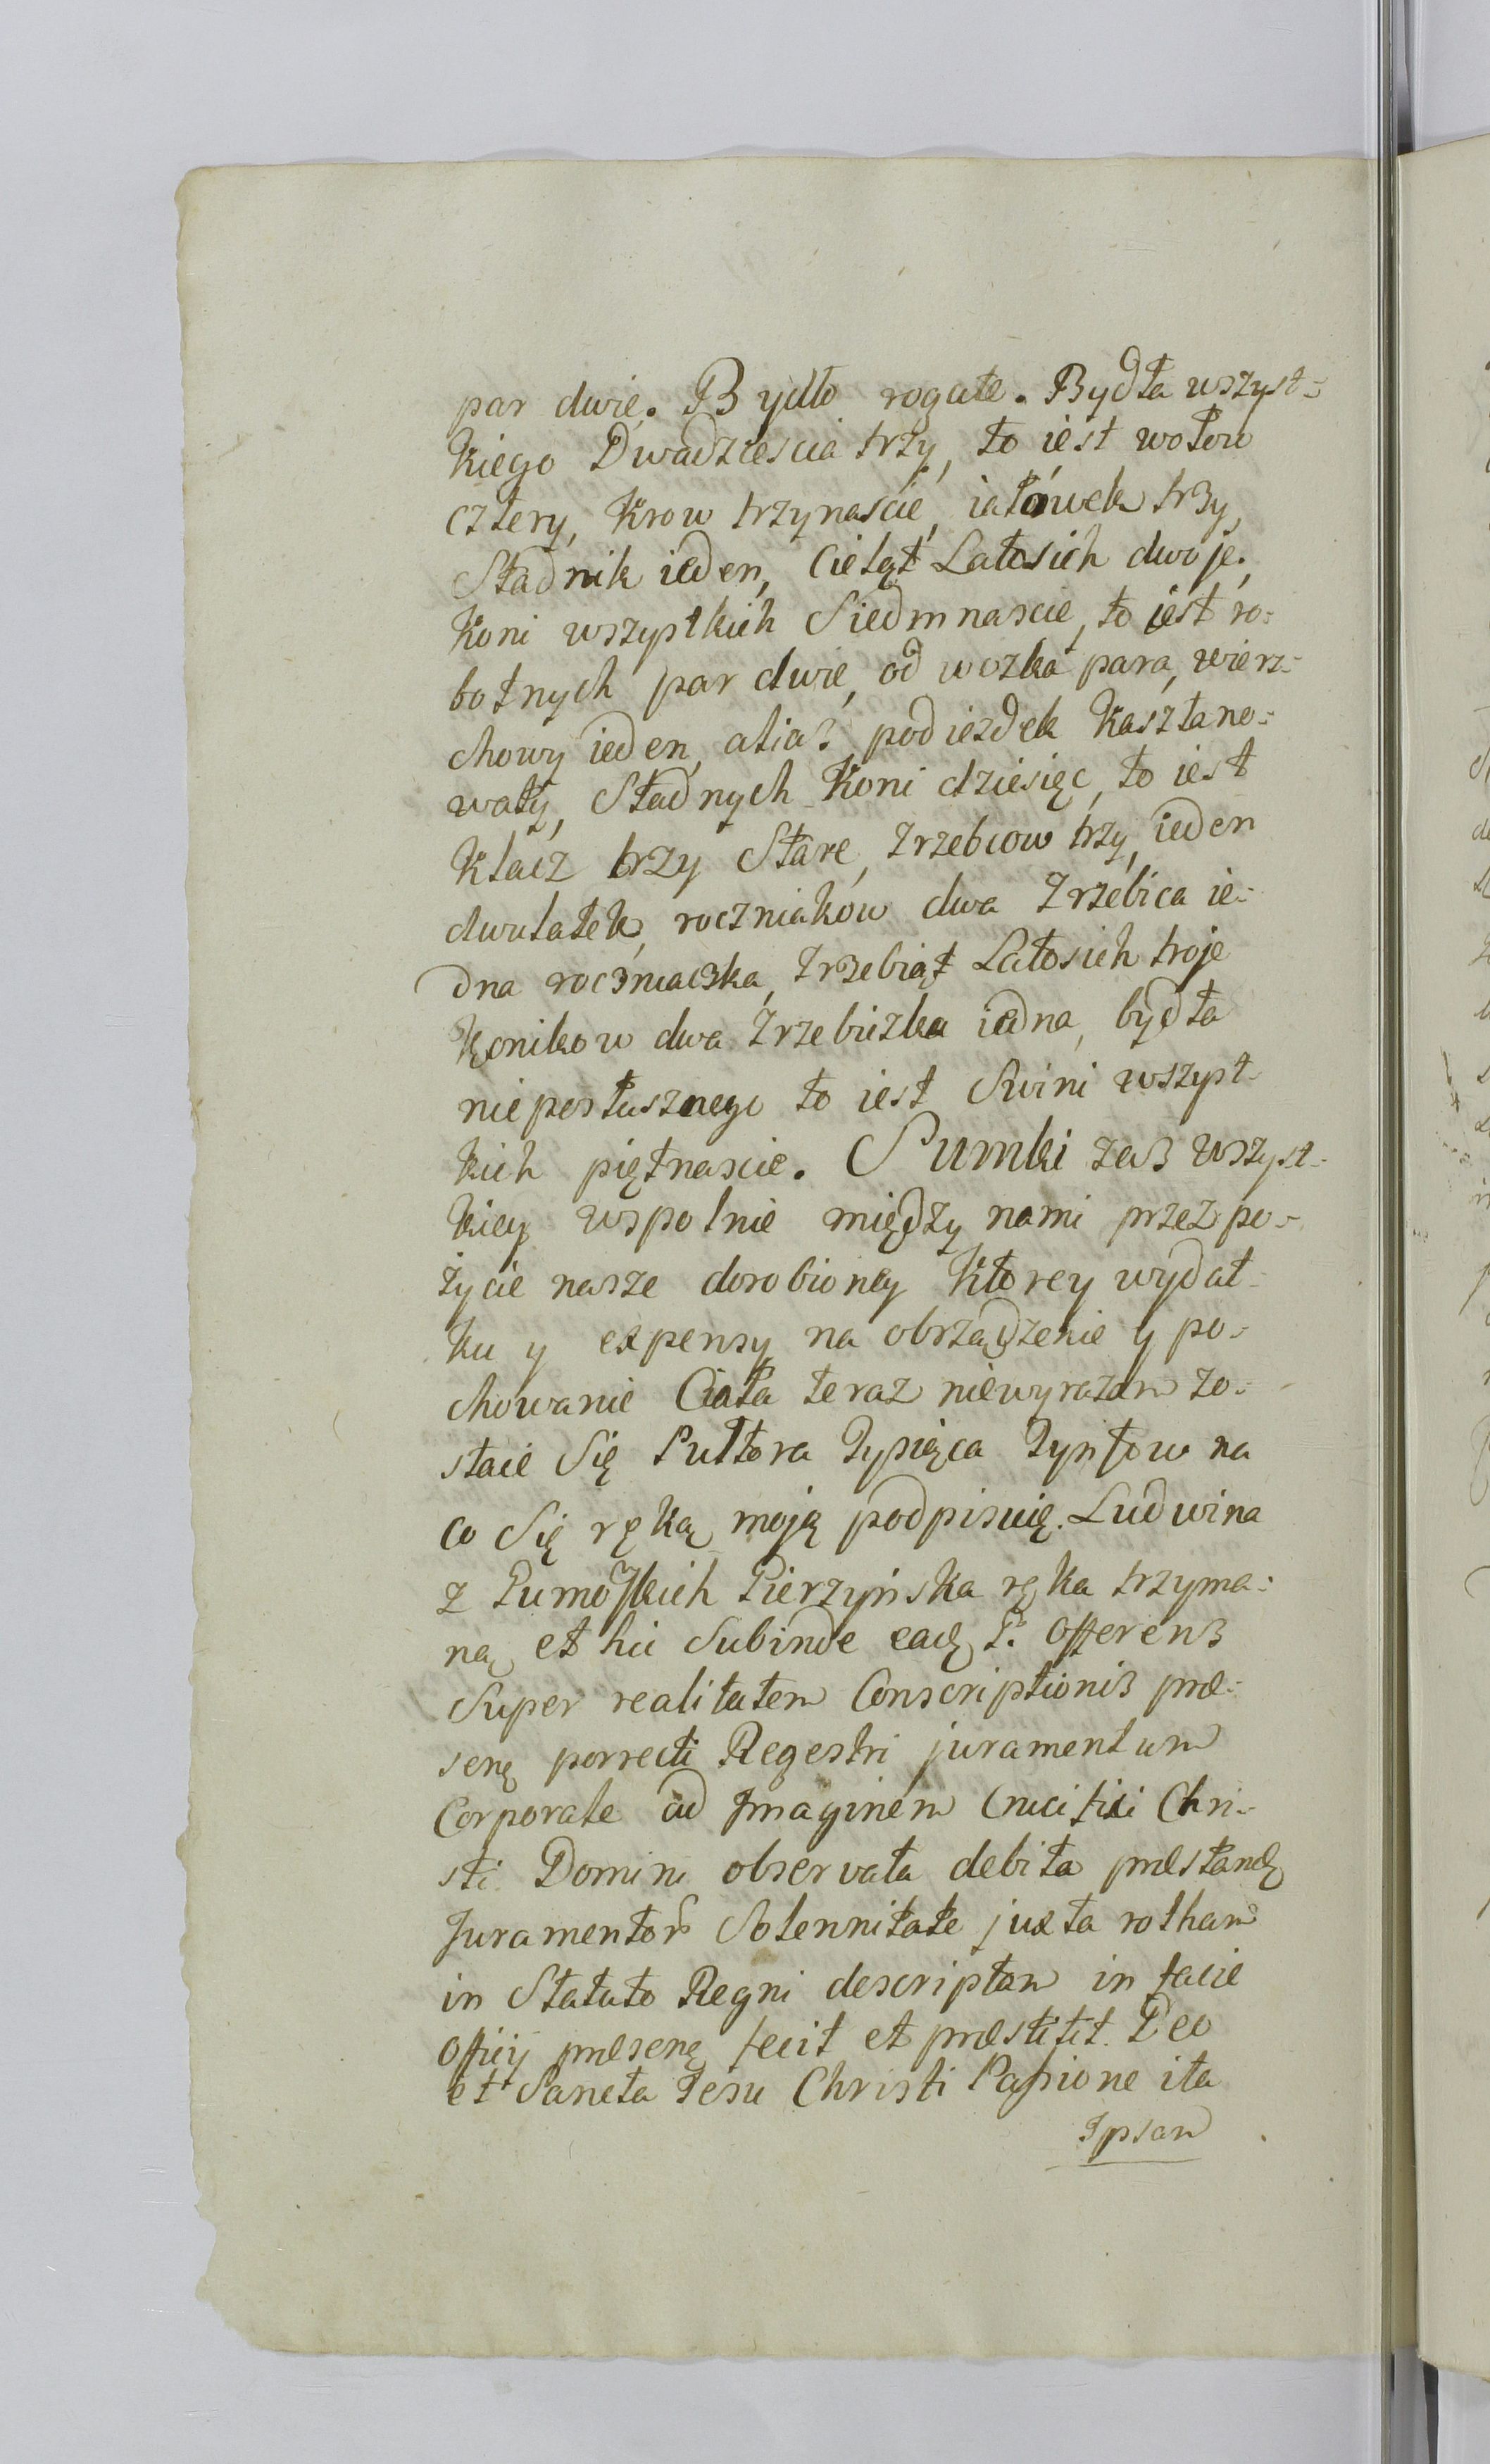 par dwie. Bydło rogate. Bydła wszyst=
kiego Dwadziescia trzy, to iest wołow
cztery, Krow trzynascie, iałówek trzy,
Stadnik ieden, Cieląt Latosich dwoje.
Koni wszystkich Siedmnascie, to jest ro=
botnych par dwie, od wozka para, wierz=
chowy ieden, alias podiezdek Kasztano=
waty, Stadnych Koni dziesięc, to iest
Klacz trzy Stare, Zrzebcow trzy, ieden
dwulatek, roczniaków dwa Zrzebica ie=
dna roczniaczka, Zrzebiąt Latosich troje
Konikow dwa Zrzebiczka iedna, bydła
nieposłusznego to iest Swini wszyst=
kich piętnascie. Sumki zas wszyst=
kiey wspolnie między nami przez po=
życie nasze dorobioney Ktorey wydat=
ku y expensy na obrządzenie y po=
chowanie Ciała teraz niewyrazam zo=
staie Się Pułtora Tysięca Tynfow na
co Się ręką moją podpisuię. Ludwina
z Pierzyńska ręka trzyma=
ną et hic Subinde eadę P. Offerens
Super realitatem Conscriptionis præ=
senę porrecti Regestri juramentum
Corporale ad Imaginem Crucifixi Chri=
sti Domini observata debita præstandę
Juramentor Solennitate juxta rotham
in Statuto Regni descriptam in facie
Officij præsenę fecit et præstitit. Deo
et Sancta Jesu Christi Passione ita
Ipsam